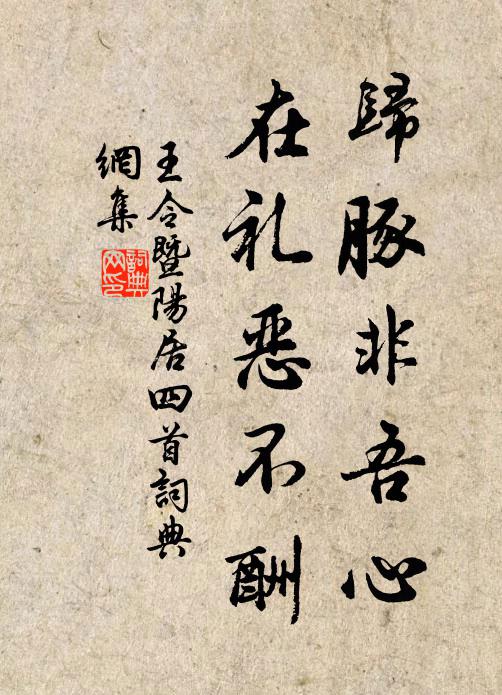 歸豚非吾心
在礼惡不酬
王令暨陽居四首詞典
網集
詞典網印